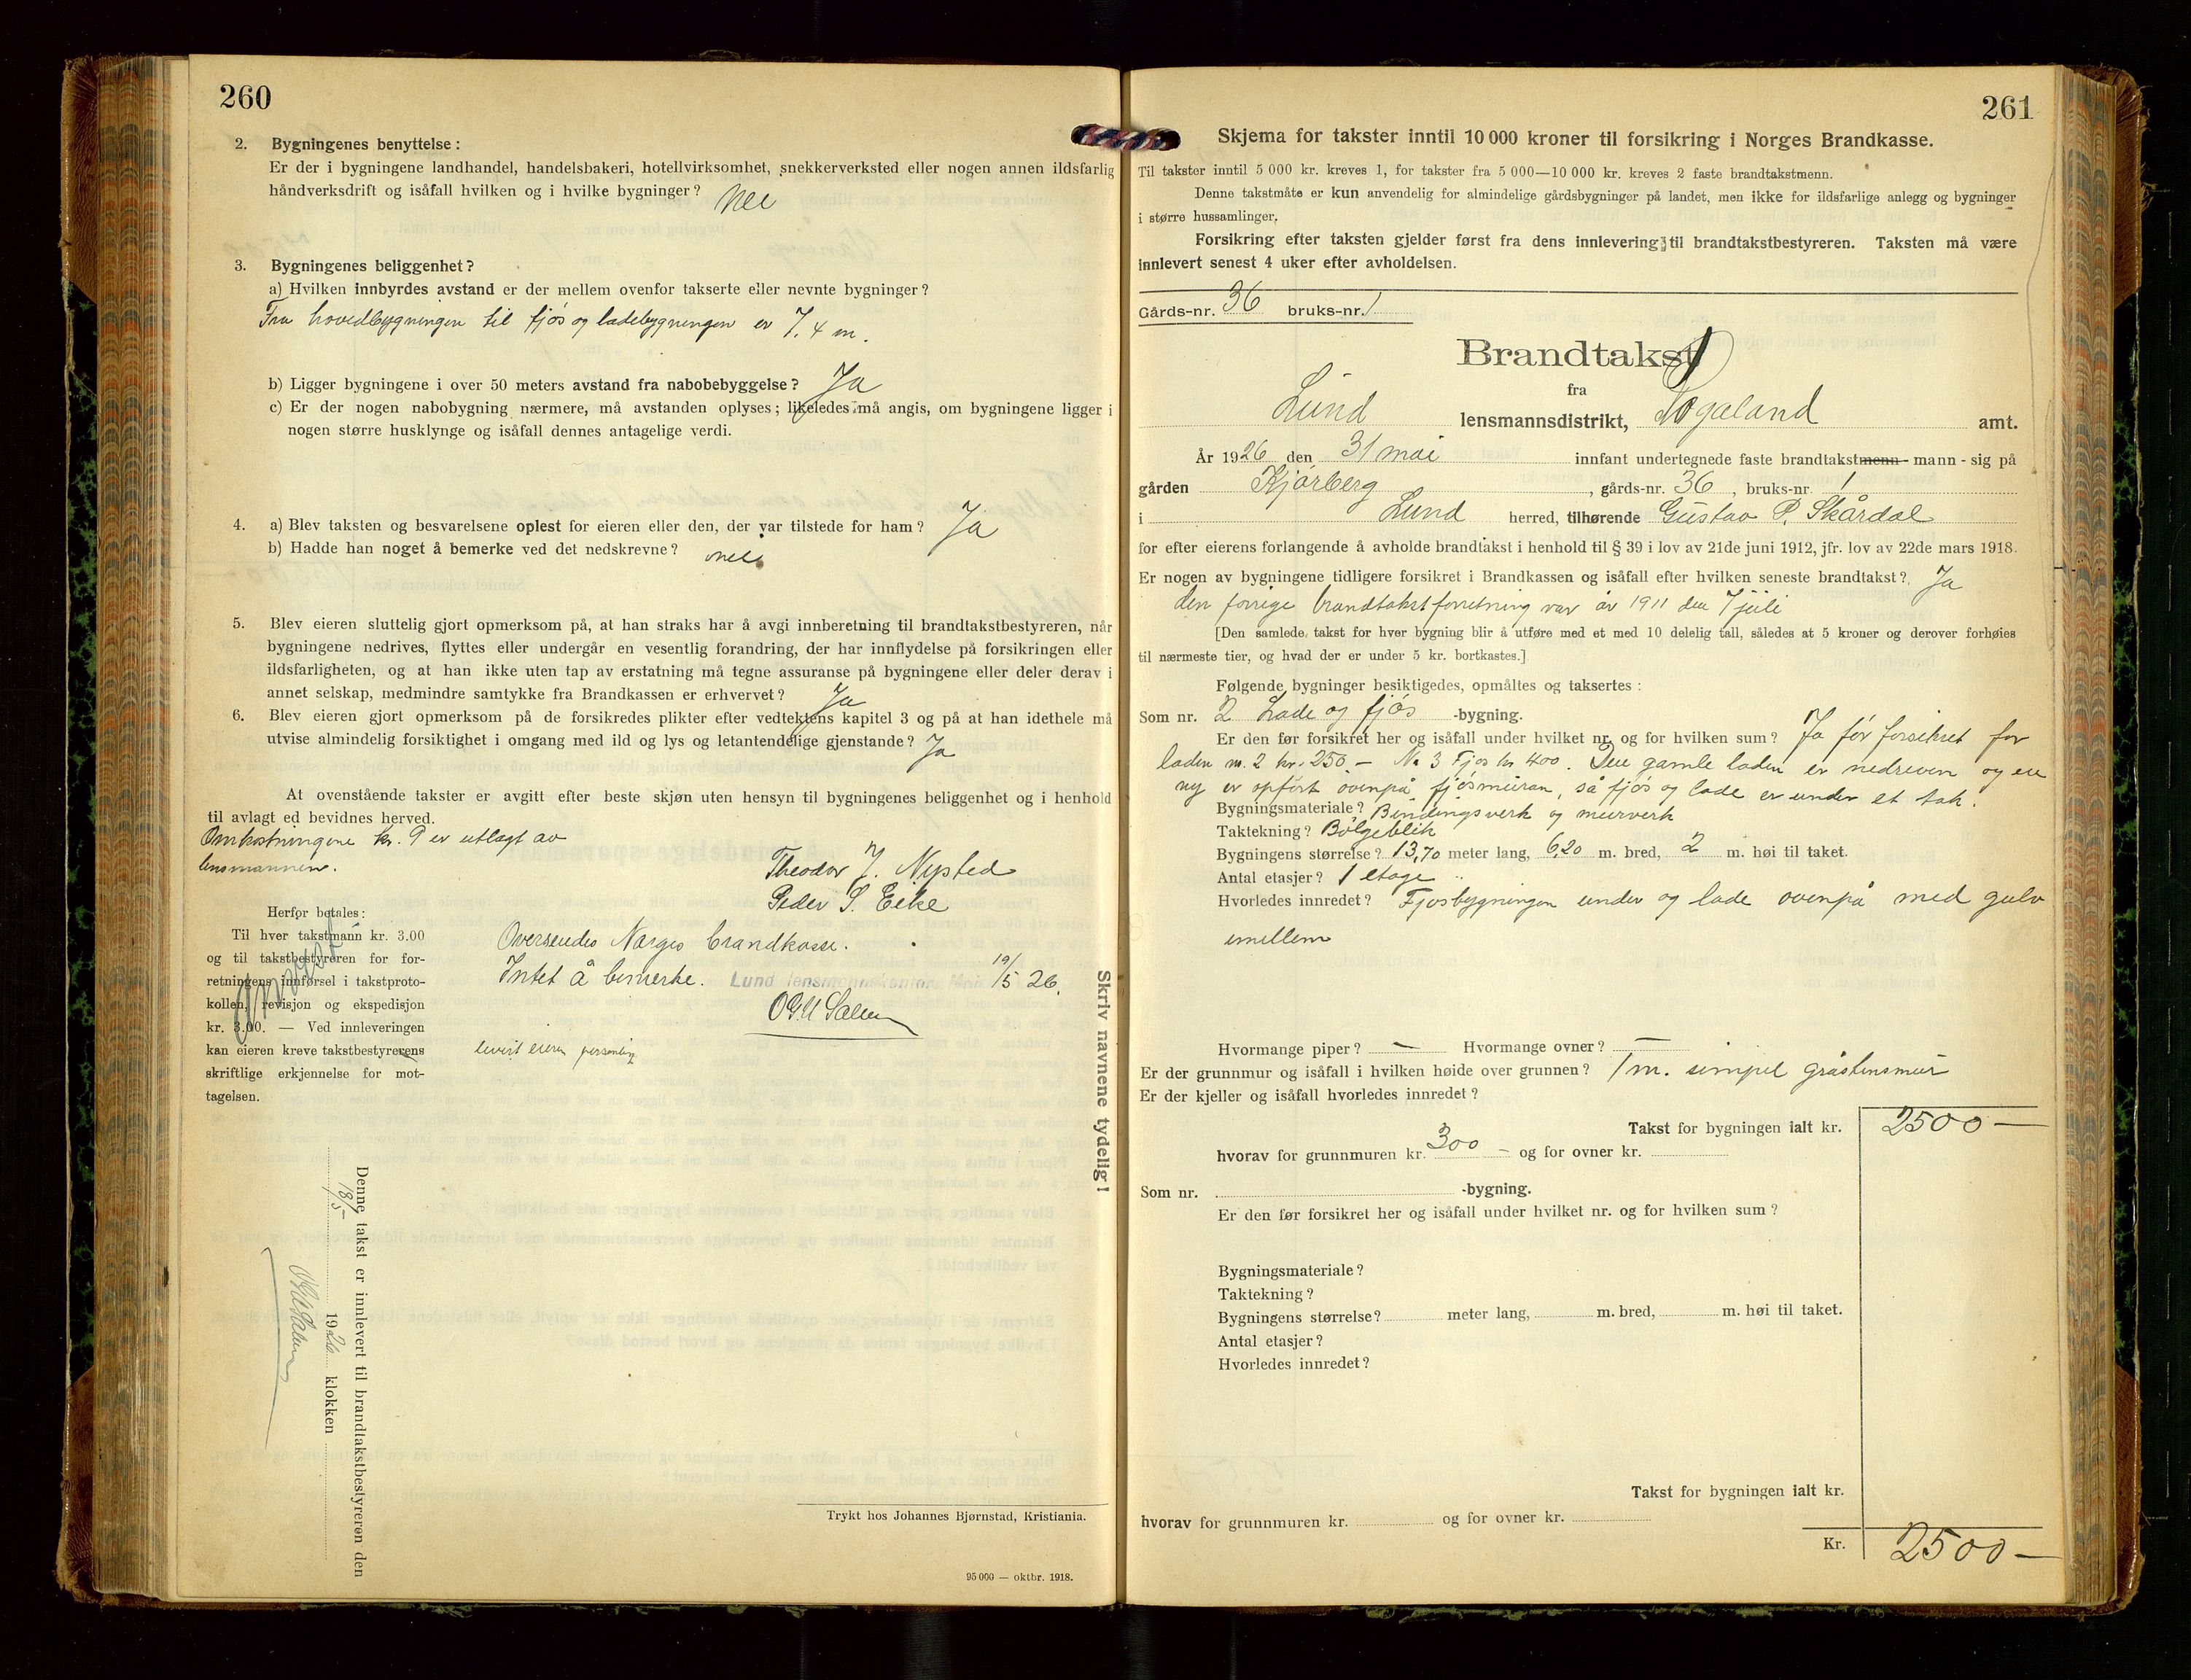 260
2. Bygningenes benyttelse:
Er der i bygningene landhandel, handelsbakeri, hotellvirksomhet, snekkerverksted eller nogen annen ildsfarlig
håndverksdrift og isåfall hvilken og i hvilke bygninger? Nei
3. Bygningenes beliggenhet?
a) Hvilken innbyrdes avstand er der mellem ovenfor takserte eller nevnte bygninger?
Fra hovedbygningen til fjós og ladebygningen er 7,4 m.
b) Ligger bygningene i over 50 meters avstand fra nabobebyggelse? Ja
c) Er der nogen nabobygning nærmere, må avstanden oplyses; likeledes må angis, om bygningene ligger i
nogen større husklynge og isåfall dennes antagelige verdi.
4. a) Blev taksten og besvarelsene oplest for eieren eller den, der var tilstede for ham? Ja
b) Hadde han noget å bemerke ved det nedskrevne? nei
5. Blev eieren sluttelig gjort opmerksom på, at han straks har å avgi innberetning til brandtakstbestyreren, når
bygningene nedrives, flyttes eller undergår en vesentlig forandring, der har innflydelse på forsikringen eller
ildsfarligheten, og at han ikke uten tap av erstatning må tegne assuranse på bygningene eller deler derav i
annet selskap, medmindre samtykke fra Brandkassen er erhvervet? Ja
6. Blev eieren gjort opmerksom på de forsikredes plikter efter vedtektens kapitel 3 og på at han idethele må
utvise almindelig forsiktighet i omgang med ild og lys og letantendelige gjenstande? Ja
At ovenstående takster er avgitt efter beste skjøn uten hensyn til bygningenes beliggenhet og i henhold
til avlagt ed bevidnes herved.
Omkostningene kr. 9 er utlagt av
lensmannen.
Theodor J. Nysted
Peder S. Eike
Herfor betales:
Til hver takstmann kr. 3.00
og til takstbestyreren for for-
retningens innførsel i takstproto-
kollen, revisjon og ekspedisjon
kr. 3.00. — Ved innleveringen
kan eieren kreve takstbestyrerens
skriftlige erkjennelse for mot-
tagelsen.
Oversendes Norges brandkasse.
Intet å bemerke. Lund lensmannskontor, Moi 19/5 26.
levert eieren personlig
Skriv navnene tydelig!
Denne takst er innlevert til brandtakstbestyreren den
18/5- 1926 klokken
Trykt hos Johannes Bjørnstad, Kristiania.
95000 — oktbr. 1918.
261
Skjema for takster inntil 10 000 kroner til forsikring i Norges Brandkasse.
Til takster inntil 5 000 kr. kreves 1, for takster fra 5 000—10 000 kr. kreves 2 faste brandtakstmenn.
Denne takstmåte er kun anvendelig for almindelige gårdsbygninger på landet, men ikke for ildsfarlige anlegg og bygninger
i større hussamlinger.
Forsikring efter taksten gjelder først fra dens innlevering til brandtakstbestyreren. Taksten må være
innlevert senest 4 uker efter avholdelsen.
Gårds-nr. 36 bruks-nr. 1
Brandtakst
fra
Lund lensmannsdistrikt, Rogaland amt.
År 1926 den 31 mai innfant undertegnede faste brandtakstmenn - mann - sig på
gården Kjørberg, gårds-nr. 36, bruks-nr 1
i Lund herred, tilhørende Gustav P. Skårdal
for efter eierens forlangende å avholde brandtakst i henhold til § 39 i lov av 21de juni 1912, jfr. lov av 22de mars 1918.
Er nogen av bygningene tidligere forsikret i Brandkassen og isåfall efter hvilken seneste brandtakst? Ja
den forrige brandtakstforretning var år 1911 den 7 juli
[Den samlede takst for hver bygning blir å utføre med et med 10 delelig tall, således at 5 kroner og derover forhøies
til nærmeste tier, og hvad der er under 5 kr. bortkastes.]
Følgende bygninger besiktigedes, opmåltes og taksertes:
Som nr. 2 Lade og fjós -bygning.
Er den før forsikret her og isåfall under hvilket nr. og for hvilken sum? Ja før forsikret for
laden m. 2 kr. 250 – No 3 Fjos kr 400. Den gamle laden er nedreven og en
ny er opført ovenpå fjósmuren, så fjós og lade er under et tak.
Bygningsmateriale? Bindingsverk og murverk
Taktekning? Bölgeblik
Bygningens størrelse? 13,70 meter lang, 6,20 m. bred, 2 m. høi til taket.
Antal etasjer? 1 etage
Hvorledes innredet? Fjosbygningen under og lade ovenpå med gulv
imellem
Hvormange piper? — Hvormange ovner? —
Er der grunnmur og isåfall i hvilken høide over grunnen? 1 m. simpel gråstensmur
Er der kjeller og isåfall hvorledes innredet?
Takst for bygningen ialt kr. 2500 —
hvorav for grunnmuren kr. 300 — og for ovner kr.
Som nr. -bygning.
Er den før forsikret her og isåfall under hvilket nr. og for hvilken sum?
Bygningsmateriale?
Taktekning?
Bygningens størrelse? meter lang, m. bred, m. høi til taket.
Antal etasjer?
Hvorledes innredet?
Takst for bygningen ialt kr.
hvorav for grunnmuren kr. og for ovner kr.
Kr. 2500 —